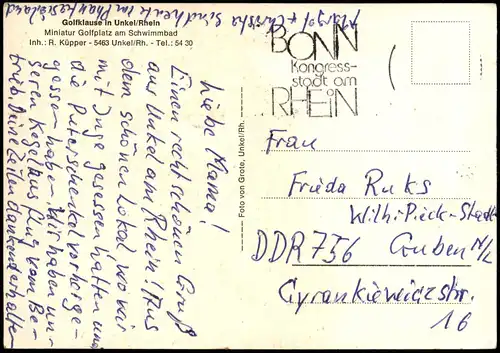 Golfklause in Unkel/Rhein
Miniatur Golfplatz am Schwimmbad
Inh.: R. Küpper - 5463 Unkel/Rh. - Tel.: 54 30
BONN
Kongress-
stadt am
RHEIN
Foto von Grote, Unkel/Rh.
Liebe Mama!
Einen recht schönen Gruß
aus Unkel am Rhein! Aus
dem schönen Lokal wo wir
mit Inge gesessen hatten und
die Peterschenkel vorherge-
gessen haben. Wir haben un-
seren Kegelausflug vom Be-
trieb. Deine Zeilen dankend erhalten
sind heute im Phantasialand
Frau
Frieda Ruks
Wilh-Pieck-Stadt
DDR 756 Guben N/L
Cyrankiewiczstr.
16